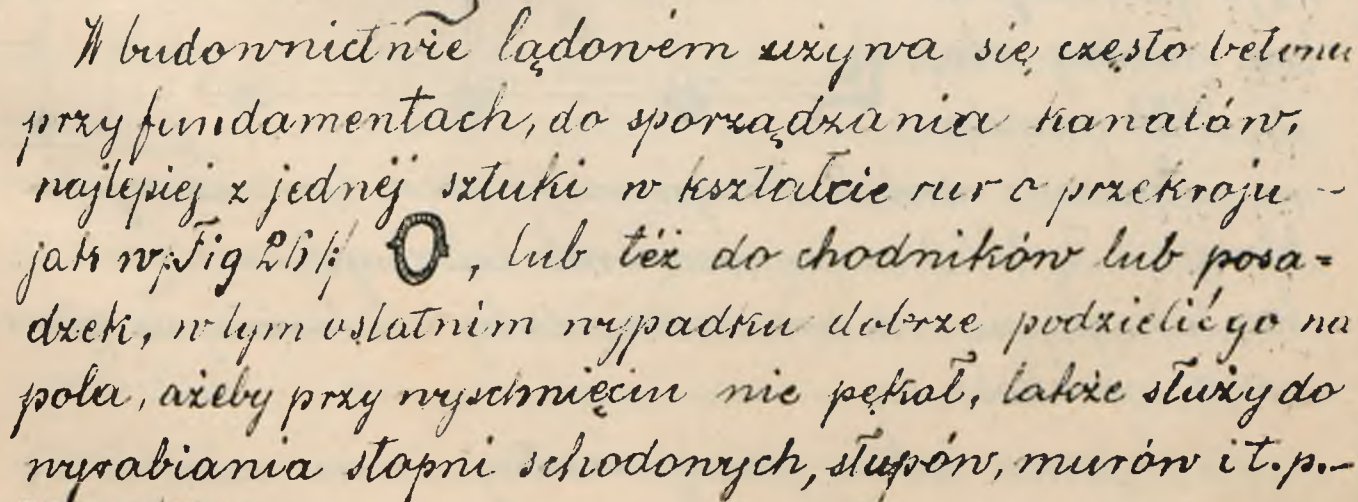 W budownictwie lądowém używa się często betonu
przy fundamentach, do sporządzania kanałów,
najlepiej z jednéj sztuki w kształcie rur o przekroju –
jak w Fig 26 /: , lub też do chodników lub posa=
dzek, w tym ostatnim wypadku dobrze podzielić go na
pola, ażeby przy wyschnięciu nie pękał, także służy do
wyrabiania stopni schodowych, słupów, murów i t. p.–